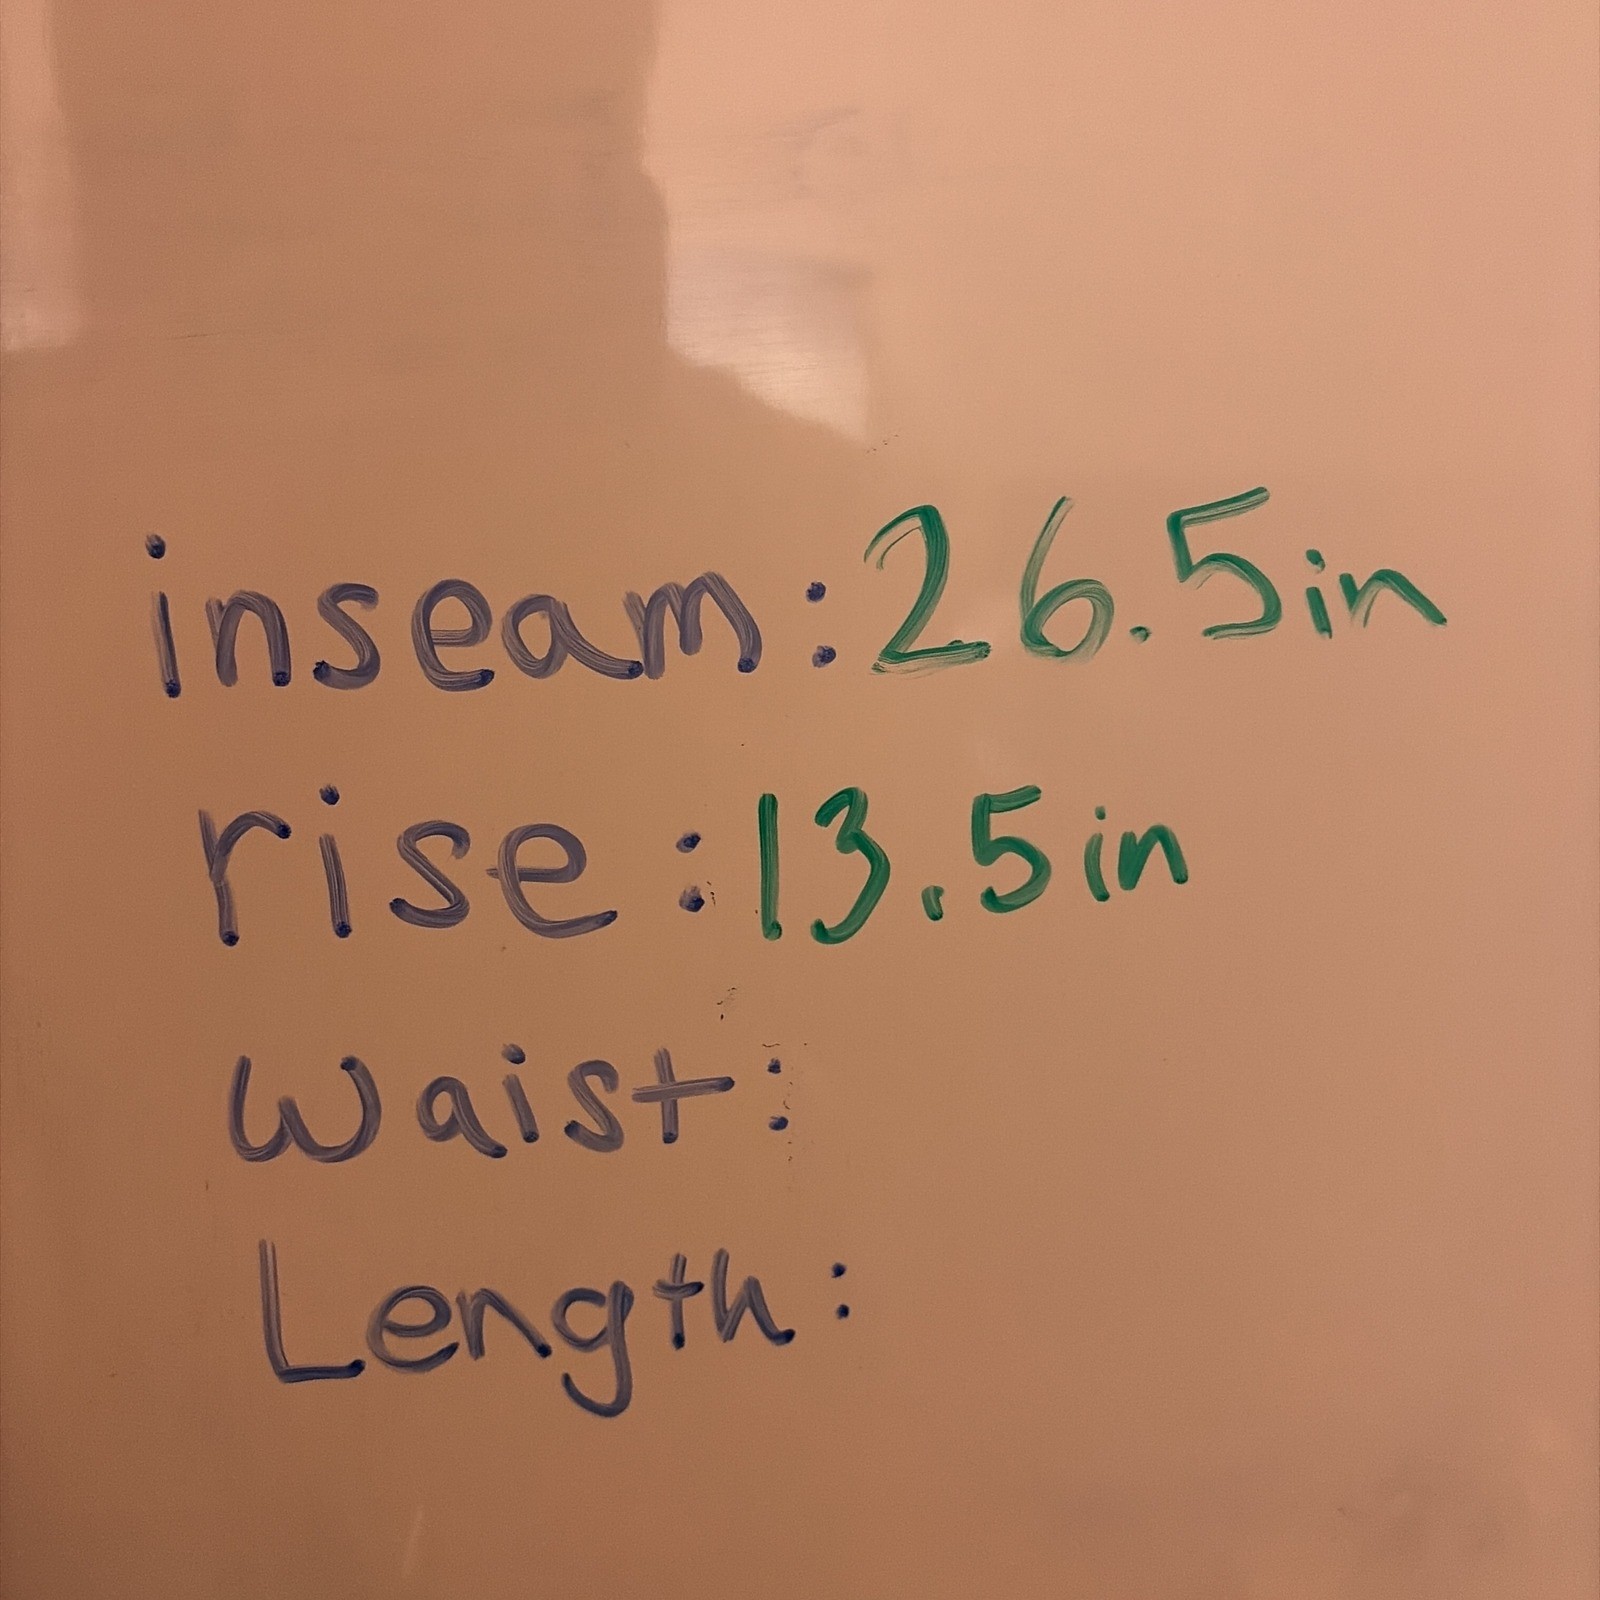 inseam: 26.5in
rise: 13.5in
Waist:
Length: